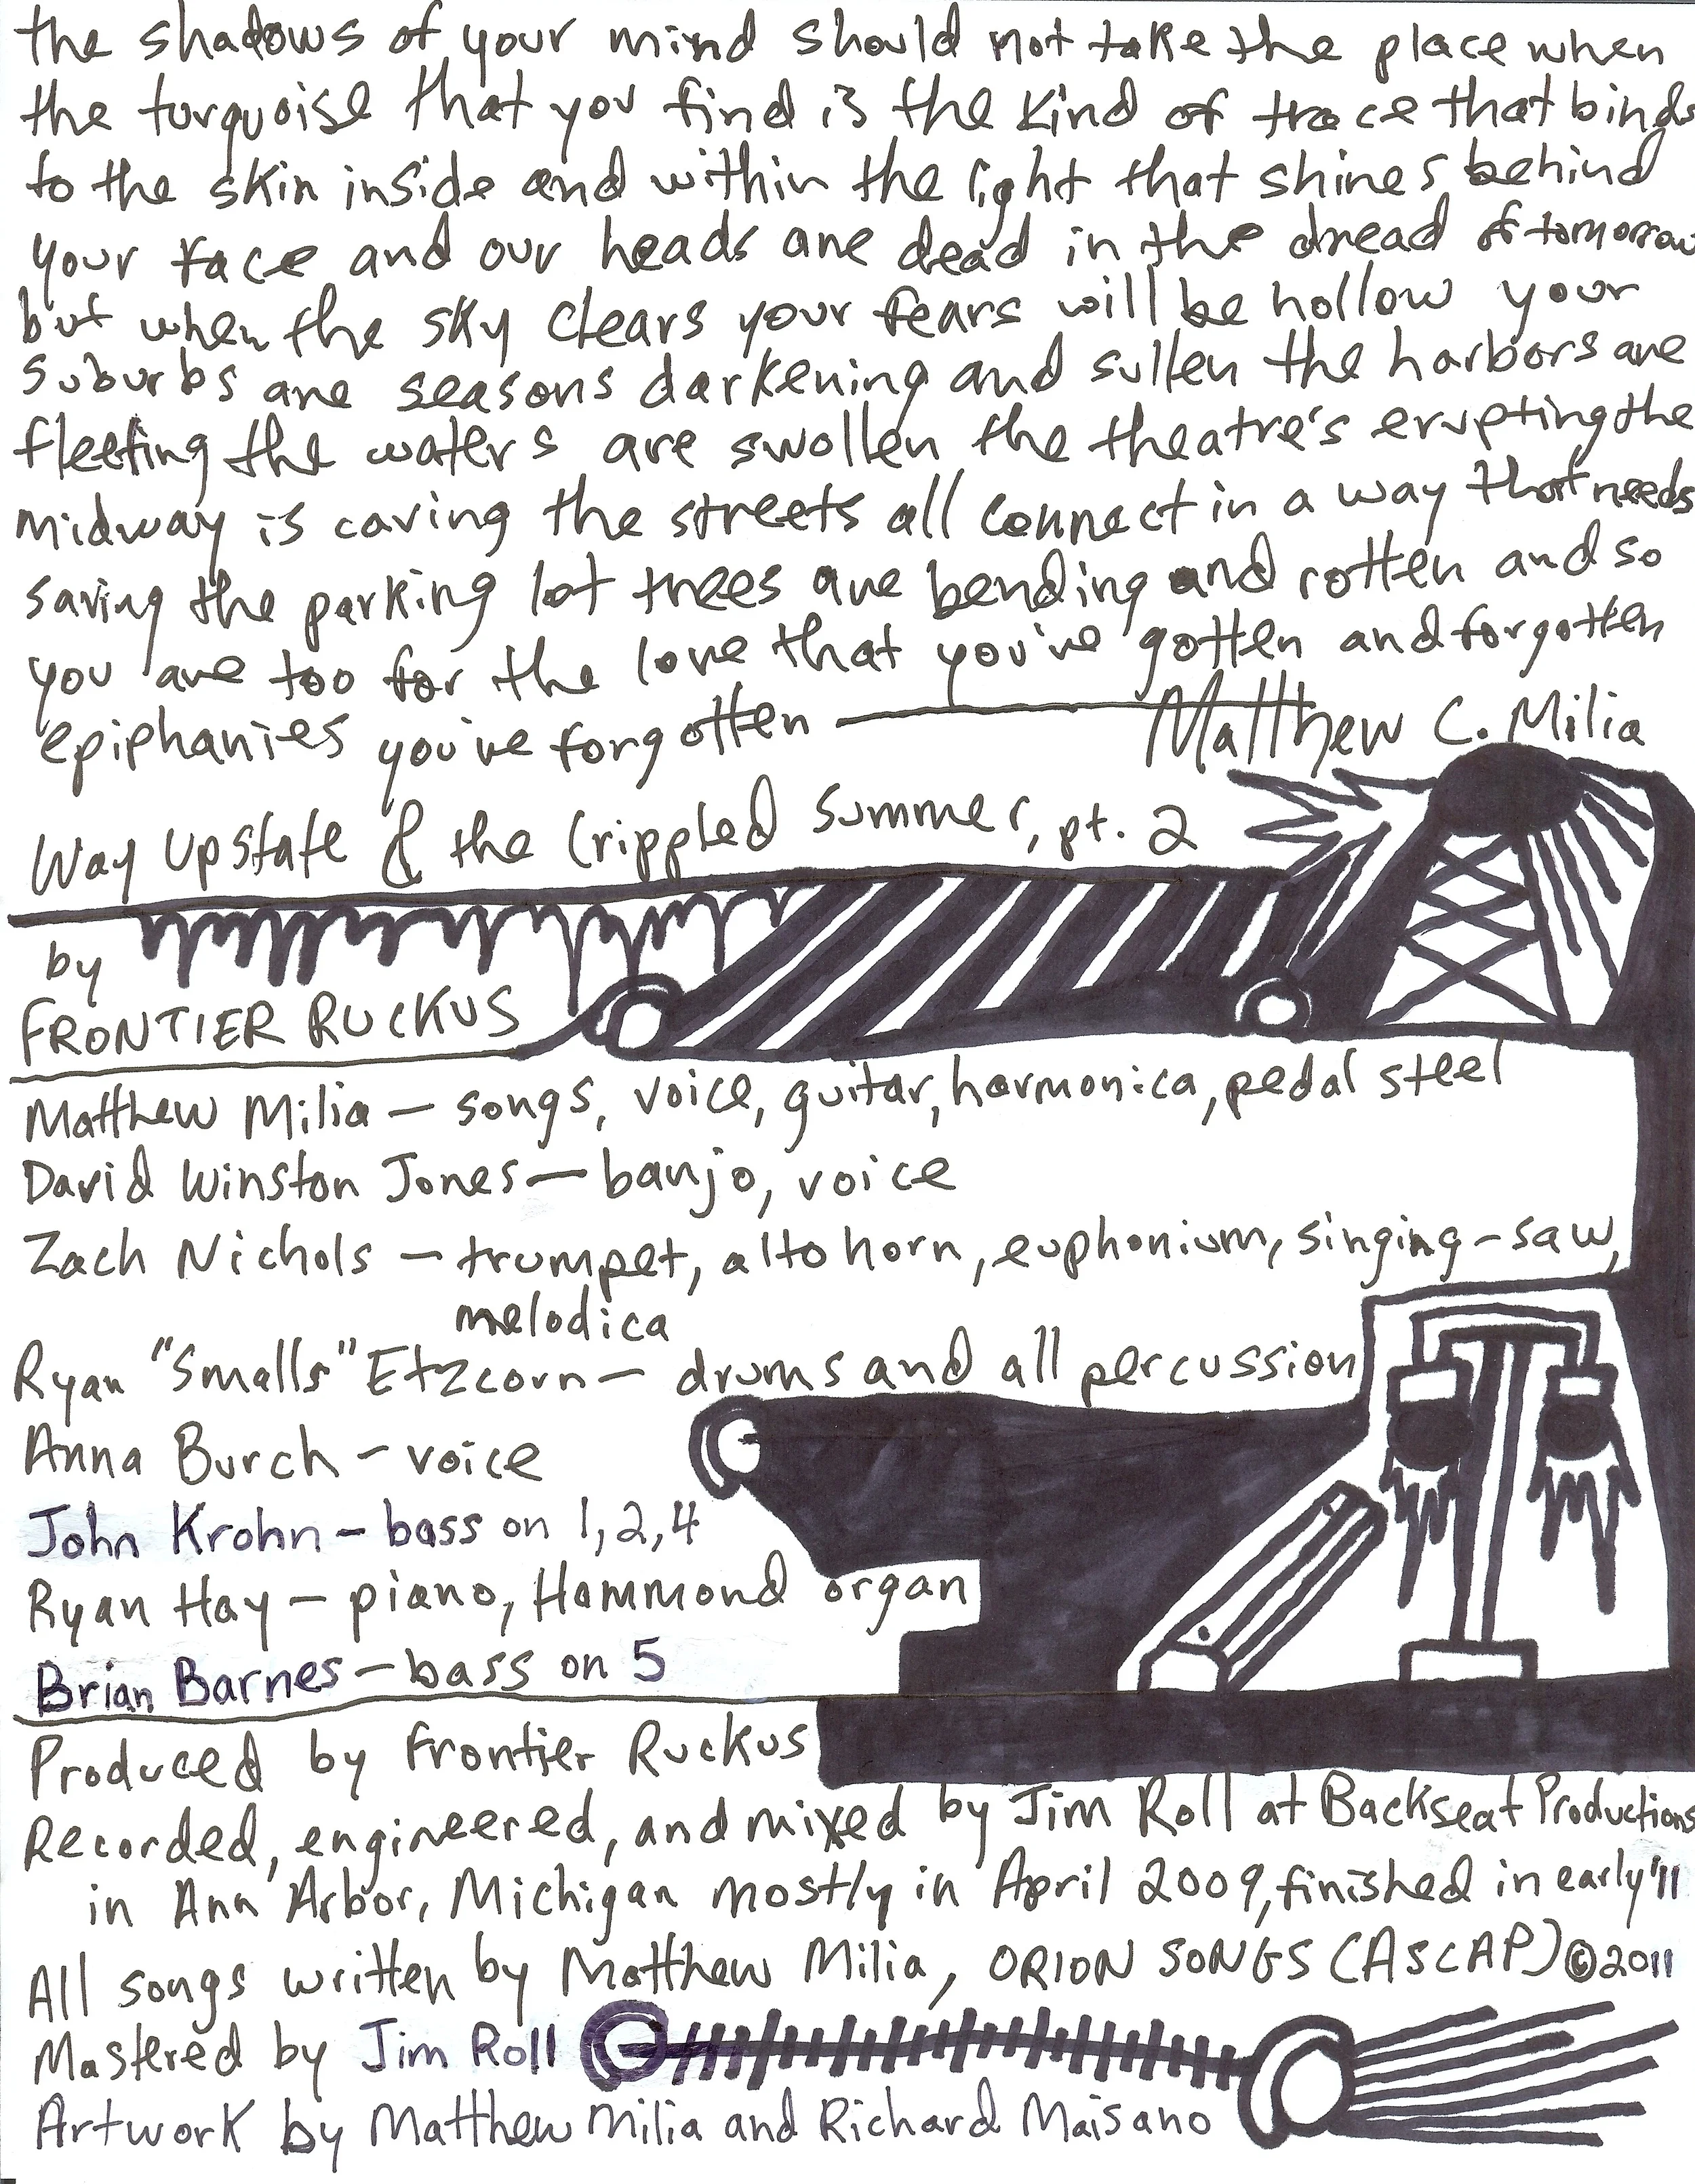 the shadows of your mind should not take the place when
the turquoise that you find is the kind of trace that binds
to the skin inside and within the light that shines behind
your face and our heads are dead in the dread of tomorrow
but when the sky clears your fears will be hollow your
suburbs are seasons darkening and sullen the harbors are
fleeting the waters are swollen the theatre's erupting the
midway is caving the streets all connect in a way that needs
saving the parking lot trees are bending and rotten and so
you are too for the love that you've gotten and forgotten
epiphanies you've forgotten — Matthew C. Milia
Way Upstate & the Crippled Summer, pt. 2
by
FRONTIER RUCKUS
Matthew Milia — songs, voice, guitar, harmonica, pedal steel
David Winston Jones — banjo, voice
Zach Nichols — trumpet, alto horn, euphonium, singing-saw,
melodica
Ryan "Smalls" Etzcorn — drums and all percussion
Anna Burch — voice
John Krohn — bass on 1, 2, 4
Ryan Hay — piano, Hammond organ
Brian Barnes — bass on 5
Produced by Frontier Ruckus
Recorded, engineered, and mixed by Jim Roll at Backseat Productions
in Ann Arbor, Michigan mostly in April 2009, finished in early '11
All songs written by Matthew Milia, ORION SONGS (ASCAP) © 2011
Mastered by Jim Roll
Artwork by Matthew Milia and Richard Maisano